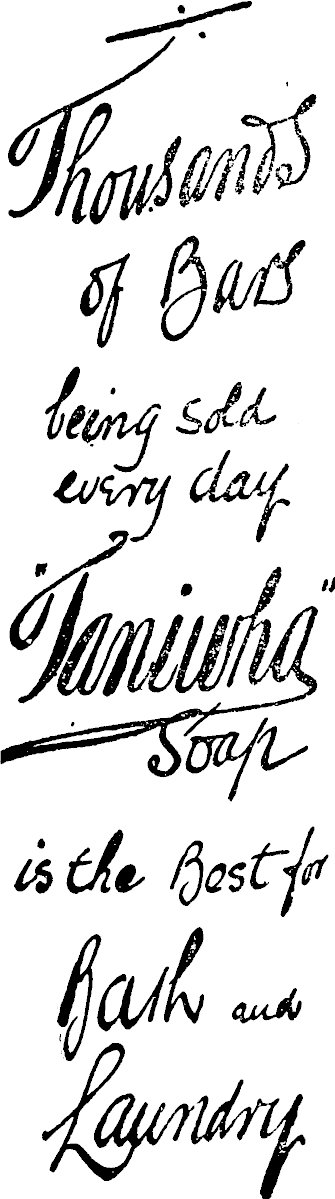 Thousands
of Bars
being sold
every day
"Taniwha"
Soap
is the Best for
Bath and
Laundry